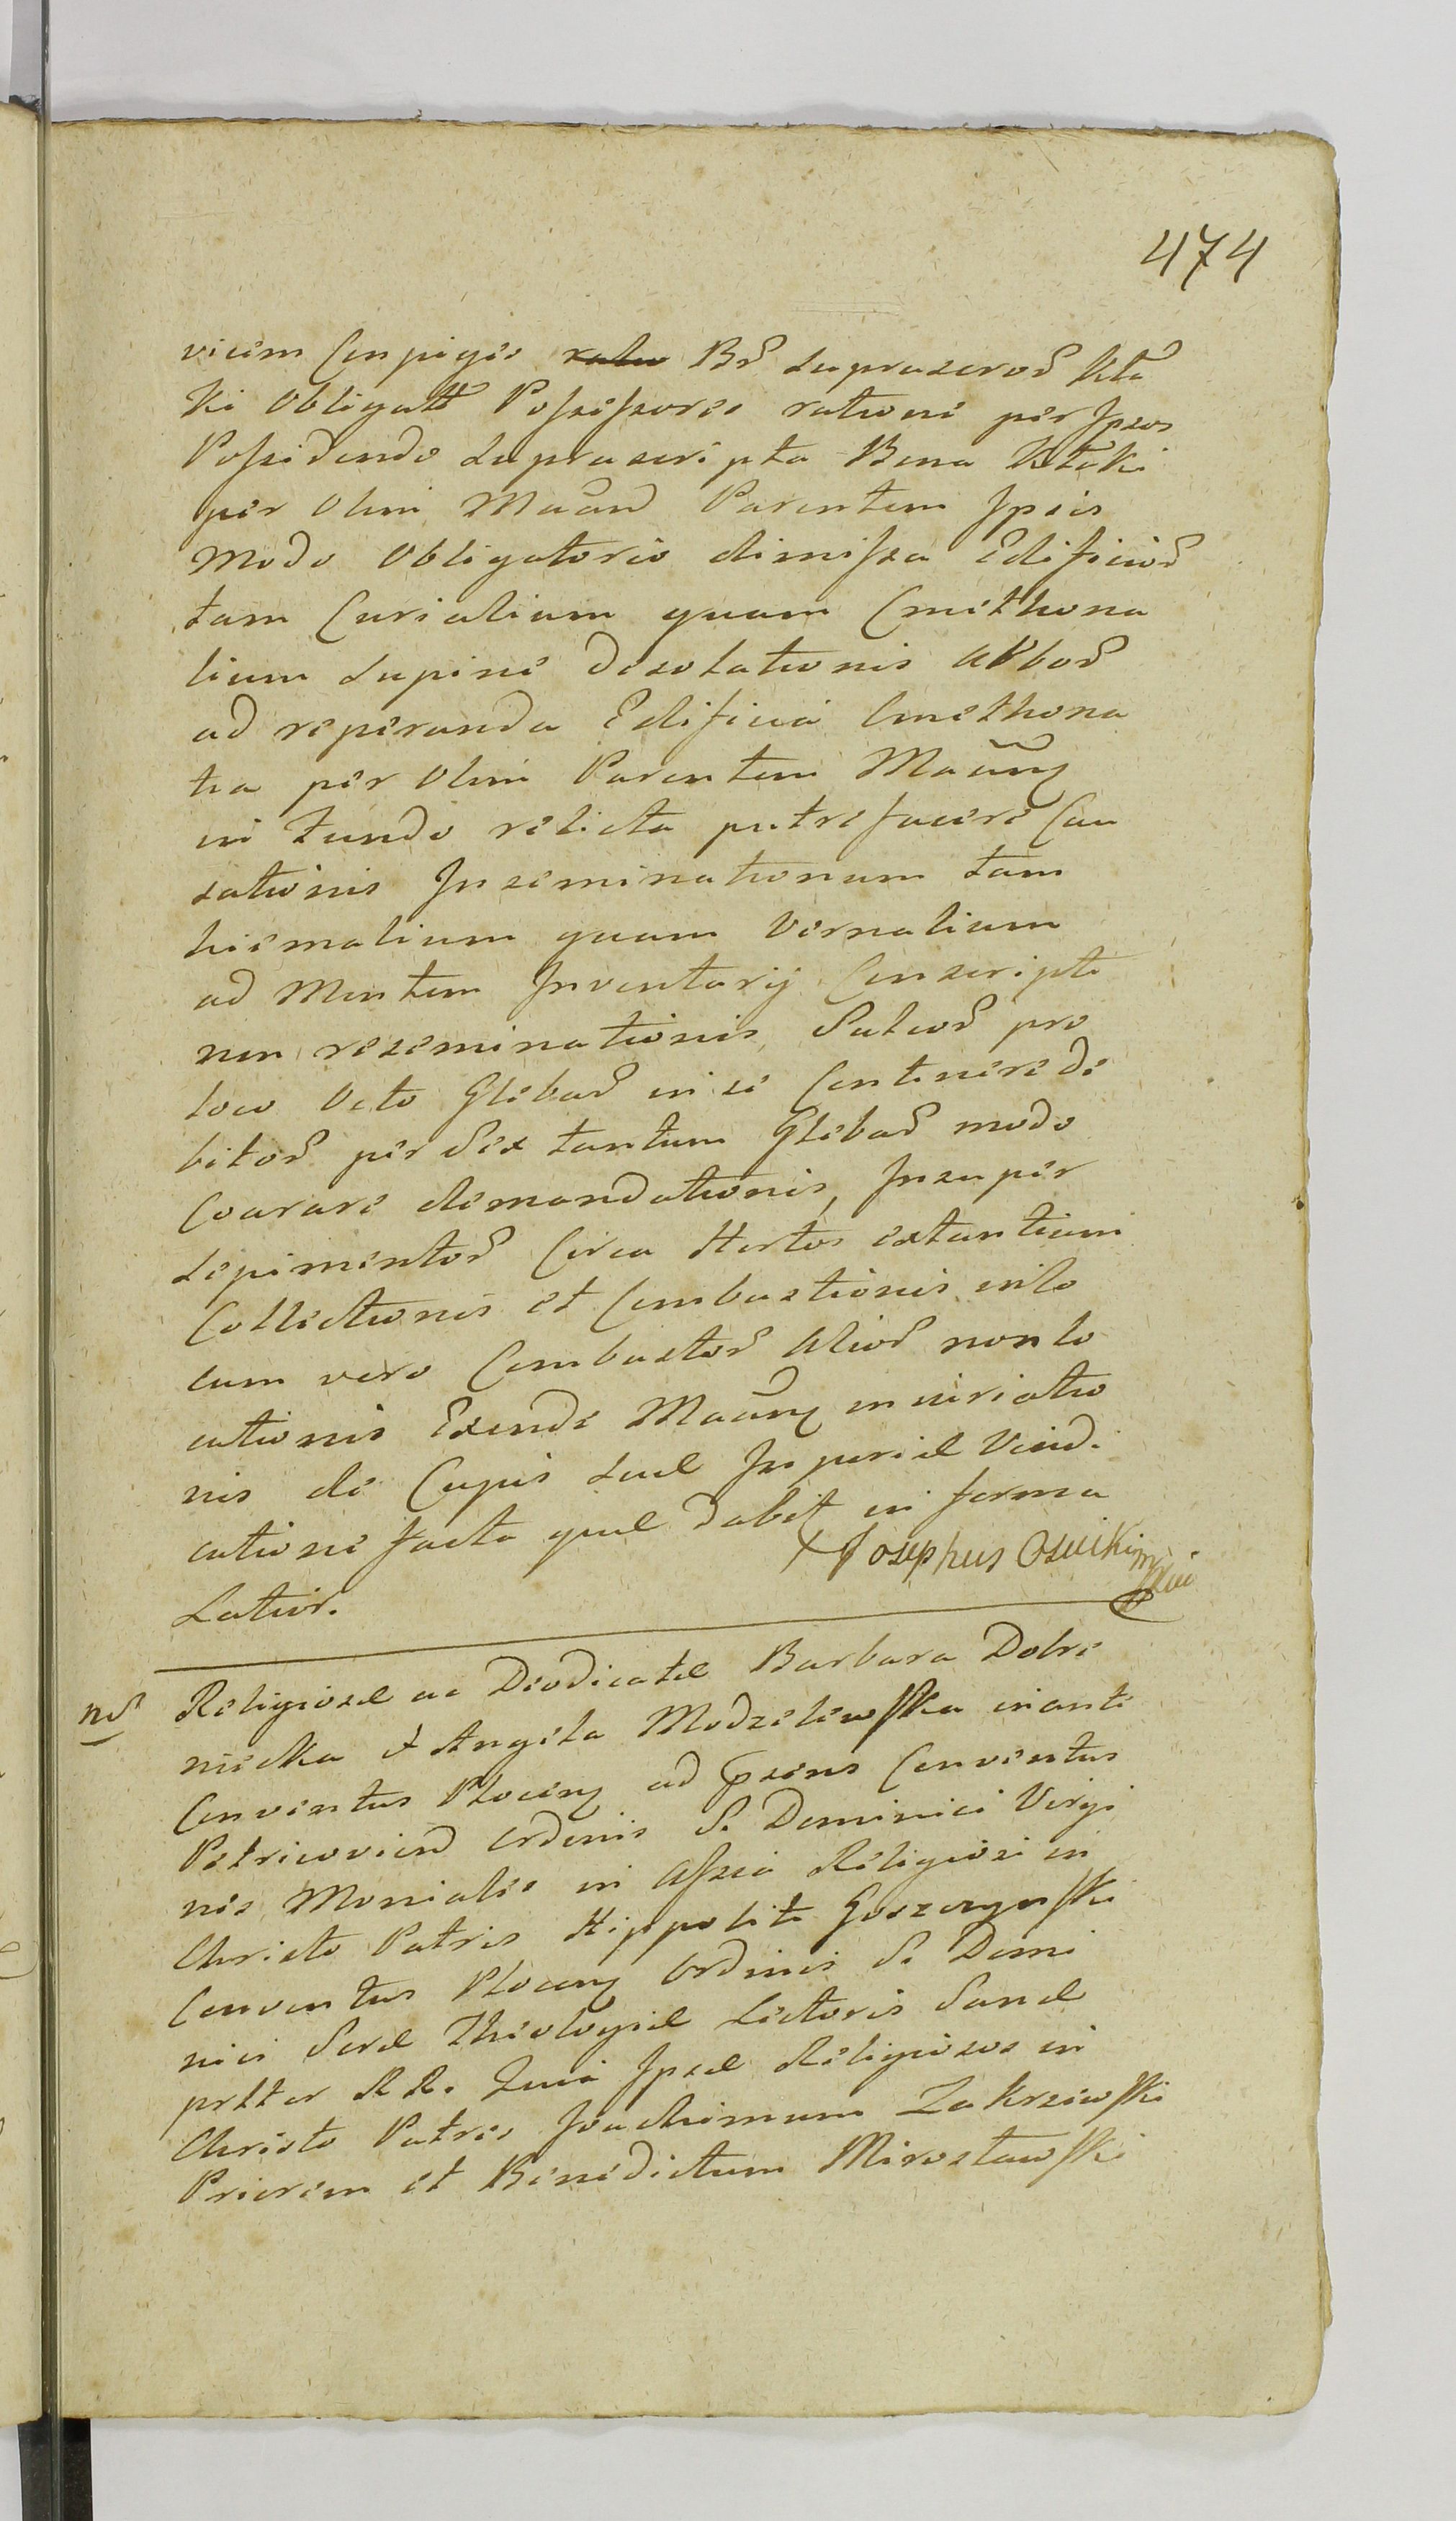 474
vicem Conpiges ratio Br̃ Suprascror̃ Kta
ki Obligatt̃ Possessores ratione per Ipsos
Possidendo Suprascripta Bona Ktaki
per Olim Mac̃nd Parentem Ipsis
modo Obligatorio dimissa Edificior̃
tam Curialium quam Cmethona
lium Supine desolationis Arbor̃
ad reperanda Edificia Cmethona
lia per Olim Parentem Mac̃nq
in fundo relicta putrefacere Cau
sationis Inseminationum tam
hiemalium quam Vernalium
ad Mentem Inventarij Conscripti
non reseminationis Sulcor̃ pro
loco Octo Glebar̃ in se Continere de
bitor̃ per Sex tantum Glebar̃ modo
Coarare demandationis, Insuper
Sepimentor̃ Circa Hortos extantium
Collectionis et Combustionis in lo
cum vero Combustor̃ Alior̃ non lo
cationis Exinde Mac̃nq inniriatio
nis de Cujus Suæ Injuriæ Vind.
catione facta quæ dabit in forma
Latior.
X Josephus Osuiki mpria
nr̃
Religiosæ ac Deodicatæ Barbara Dobrz
nicka et Angela Modzelewska in ante
Conventus Plocenq ad p̃sens Conventus
Petricovien̄ Ordinis S. Dominici Virgi
nes Moniales in Assia Religiosi in
Christo Patris Hippoliti Goszczynski
Conventus Plocenq Ordinis S. Domi
nici Scræ Theologiæ Lectoris Sanæ
prttar R R. Quia Ipsæ Religiosos in
Christo Patres Joachimum Zakrzewski
Priorem et Benedictum Mirosławski